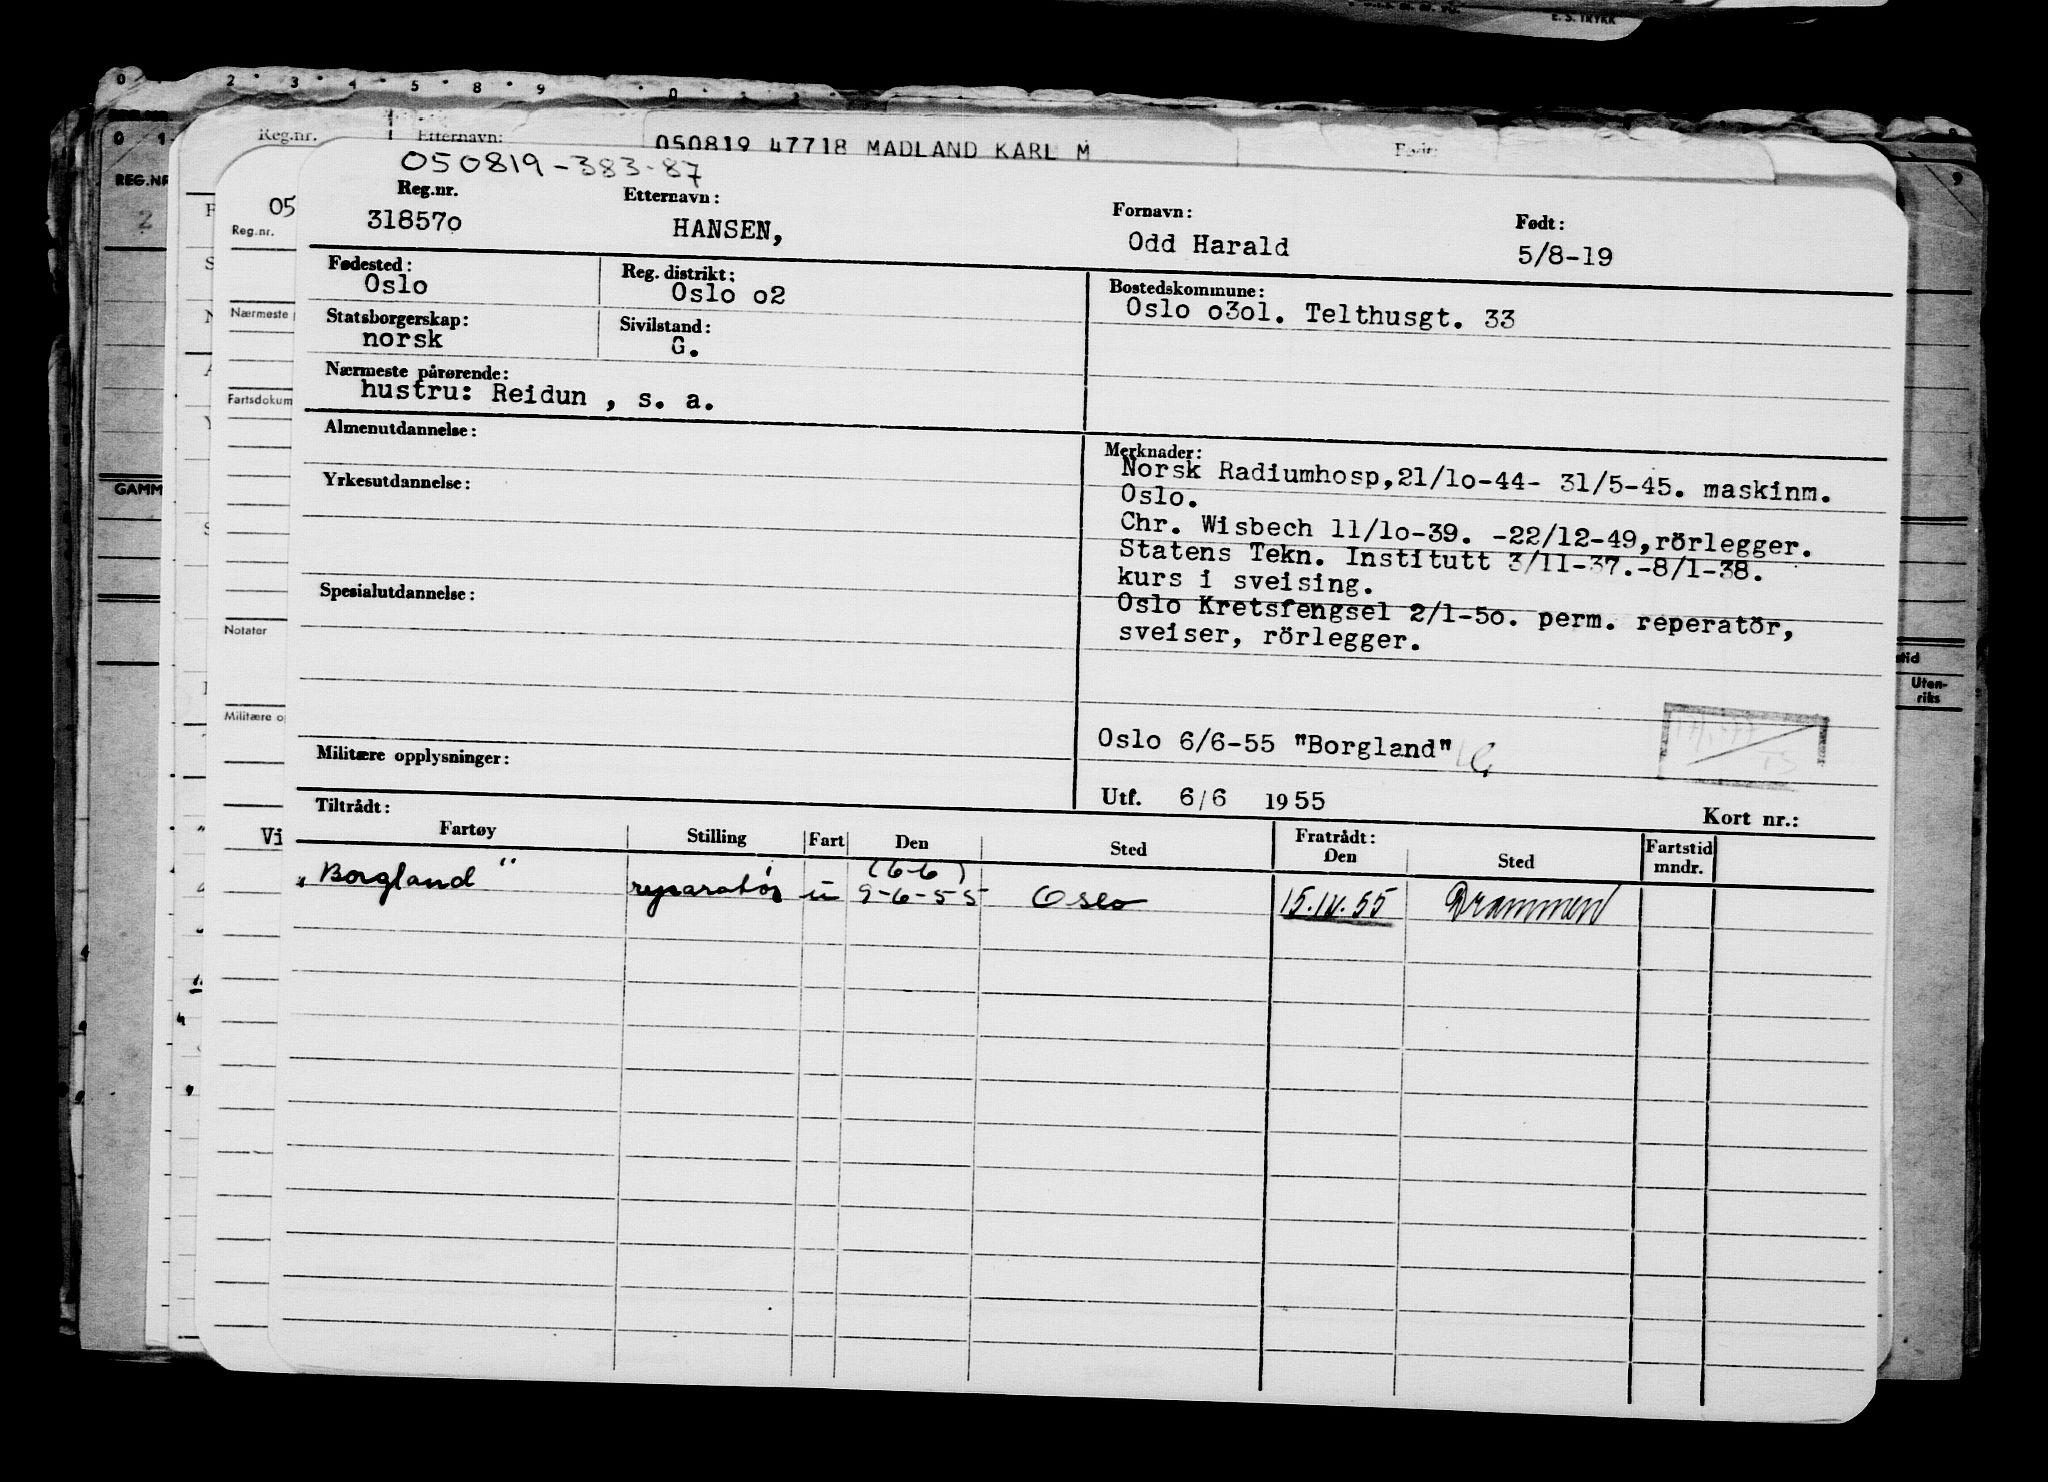 E. S. TRYKK
0 2 3 4 5 8 9 0
Reg.nr. Etternavn: 050819 47718 MADLAND KARL M Født:
0 1
REG.NR
2
GAMM
05
Reg.nr.
Nærmeste
Fartsdokum
Notater
Militære op
Vi
9
tid
Uten-
riks
050819-383-87
Reg.nr. Etternavn: Fornavn: Født:
318570 HANSEN, Odd Harald 5/8-19
Fødested: Reg. distrikt: Bostedskommune:
Oslo Oslo o2 Oslo o3ol. Telthusgt. 33
Statsborgerskap: Sivilstand:
norsk G.
Nærmeste pårørende:
hustru: Reidun , s. a.
Almenutdannelse:
Yrkesutdannelse:
Spesialutdannelse:
Militære opplysninger:
Merknader:
Norsk Radiumhosp,21/lo-44- 31/5-45. maskinm.
Oslo.
Chr. Wisbech 11/lo-39. -22/12-49,rörlegger.
Statens Tekn. Institutt 3/11-37.-8/1-38.
kurs i sveising.
Oslo Kretsfengsel 2/1-5o. perm. reperatör,
sveiser, rörlegger.
Oslo 6/6-55 "Borgland"
Utf. 6/6 1955
Kort nr.:
Tiltrådt: Fratrådt:
Fartøy Stilling Fart Den Sted Den Sted Fartstid mndr.
(6-6)
„Borgland" reparatör u 9-6-55 Oslo 15.IV.55 Drammen